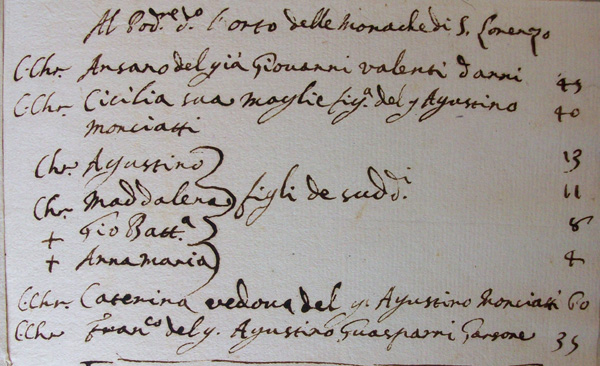 Al Pod.re d.o l'orto delle Monache di S. Lorenzo
C:Chr. Ansano del già Giovanni Valenti d'anni 45
C:Chr. Cicilia sua moglie fig.a del g. Agustino 40
Monciatti
Chr. Agustino 13
Chr. Maddalena figli de sudd.i 11
+ Gio Batt.a 8
+ Anna Maria 4
C:Chr. Caterina vedova del g. Agustino Monciatti 60
C:Chr. Fran.co del g. Agustino Guasparri Garzone 35